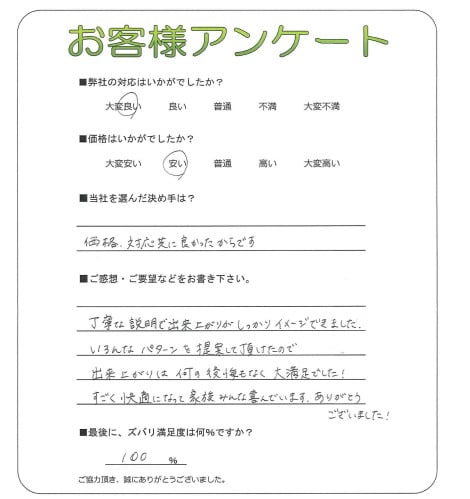 お客様アンケート
■弊社の対応はいかがでしたか？
大変良い 良い 普通 不満 大変不満
■価格はいかがでしたか？
大変安い 安い 普通 高い 大変高い
■当社を選んだ決め手は？
価格、対応共に良かったからです
■ご感想・ご要望などをお書き下さい。
丁寧な説明で出来上がりがしっかりイメージできました。
いろんなパターンを提案して頂けたので
出来上がりは何の後悔もなく大満足でした！
すごく快適になって家族みんな喜んでいます。ありがとう
ございました！
■最後に、ズバリ満足度は何％ですか？
100 ％
ご協力頂き、誠にありがとうございました。